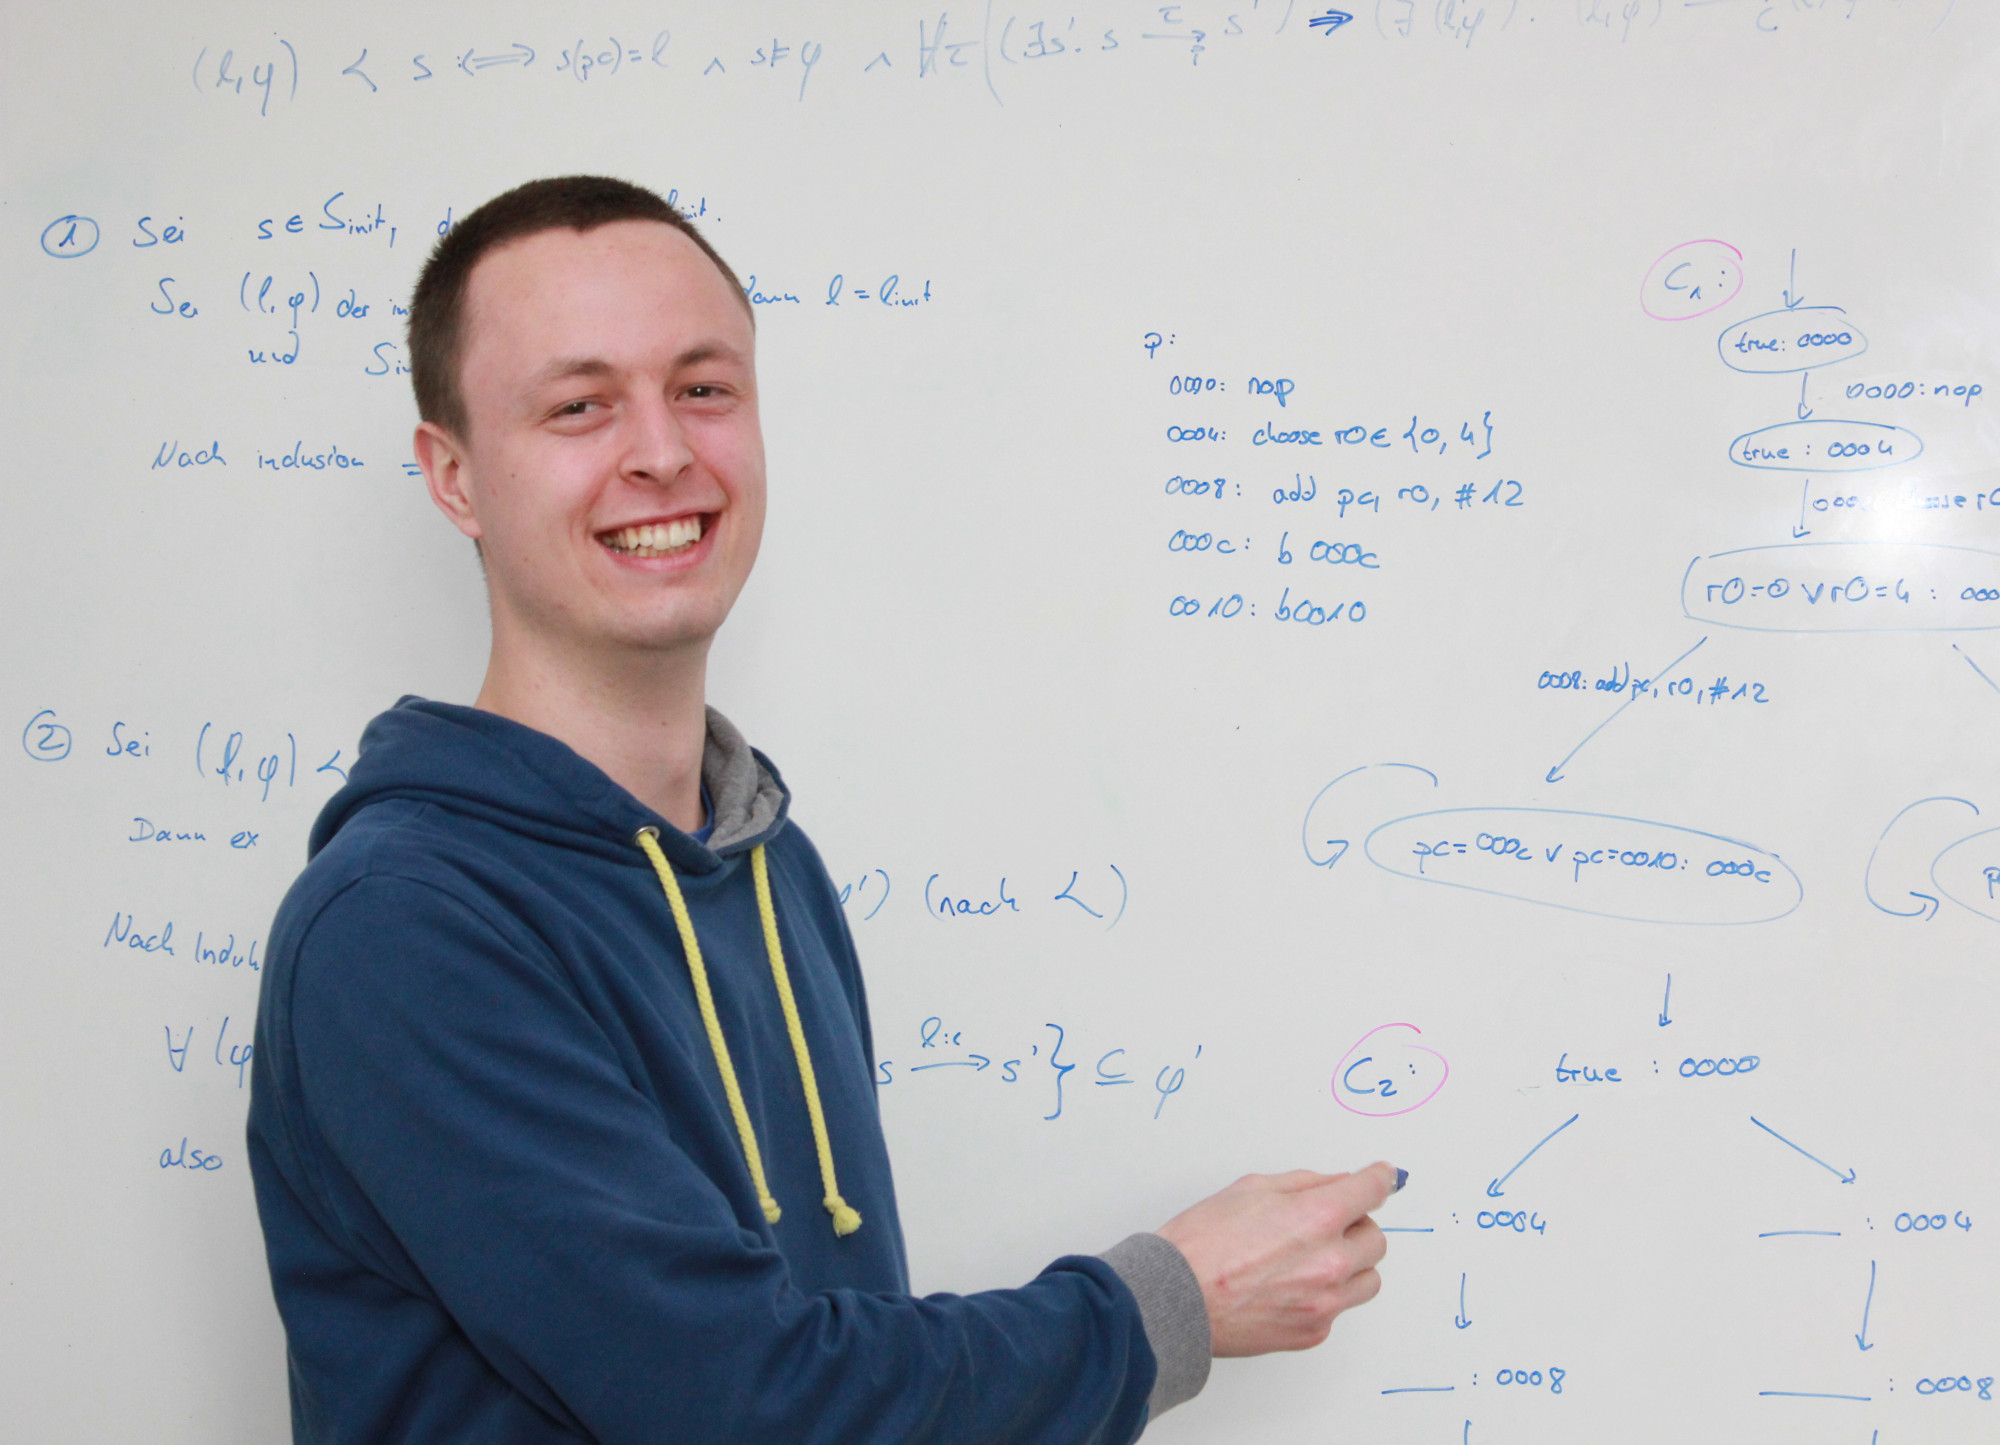 (l,φ) ≺ s :⟺ s(pc)=l ∧ s⊨φ ∧ ∀τ((∃s'. s τ→p s') ⇒ (∃(l,φ).
① Sei s ∈ Sinit,
Sei (l,φ) der dann l = linit
und
Nach inclusion =
② Sei (l,φ) ≺
Dann ex
φ') (nach ≺)
Nach
∀ (φ s l:c→ s'} ⊆ φ'
also
p:
0000: nop
0004: choose r0 ∈ {0, 4}
0008: add pc, r0, #12
000c: b 000c
0010: b0010
C₁:
true: 0000
0000: nop
true : 0004
r0=0 ∨ r0=4 :
0008: add pc, r0, #12
pc=000c ∨ pc=0010: 000c
C₂:
true : 0000
: 0004 : 0004
: 0008 : 0008